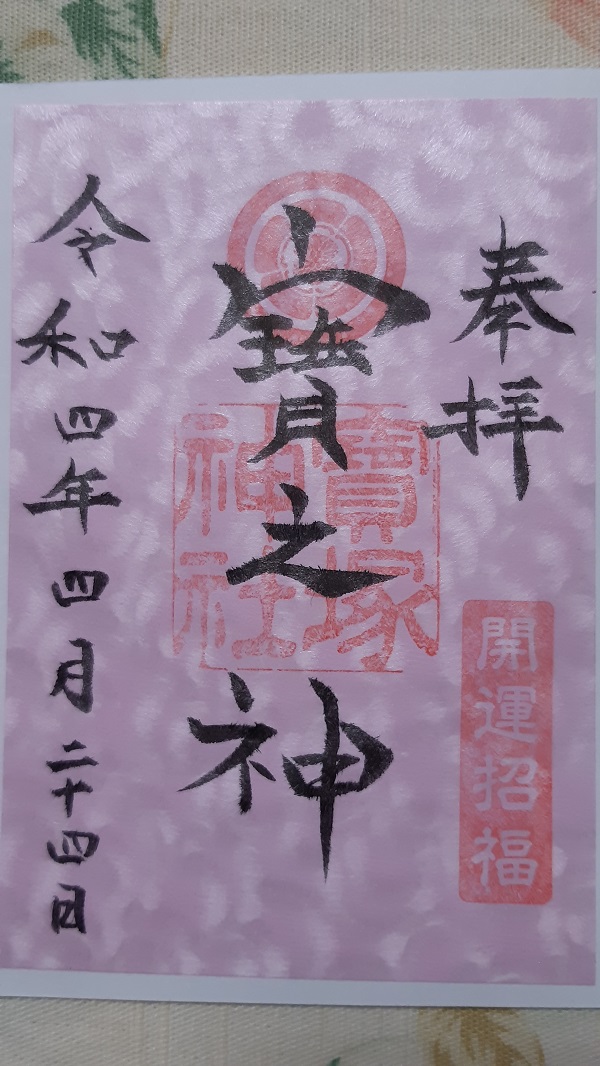 奉拝
開運招福
寳之神
寳塚
神社
令和四年四月二十四日